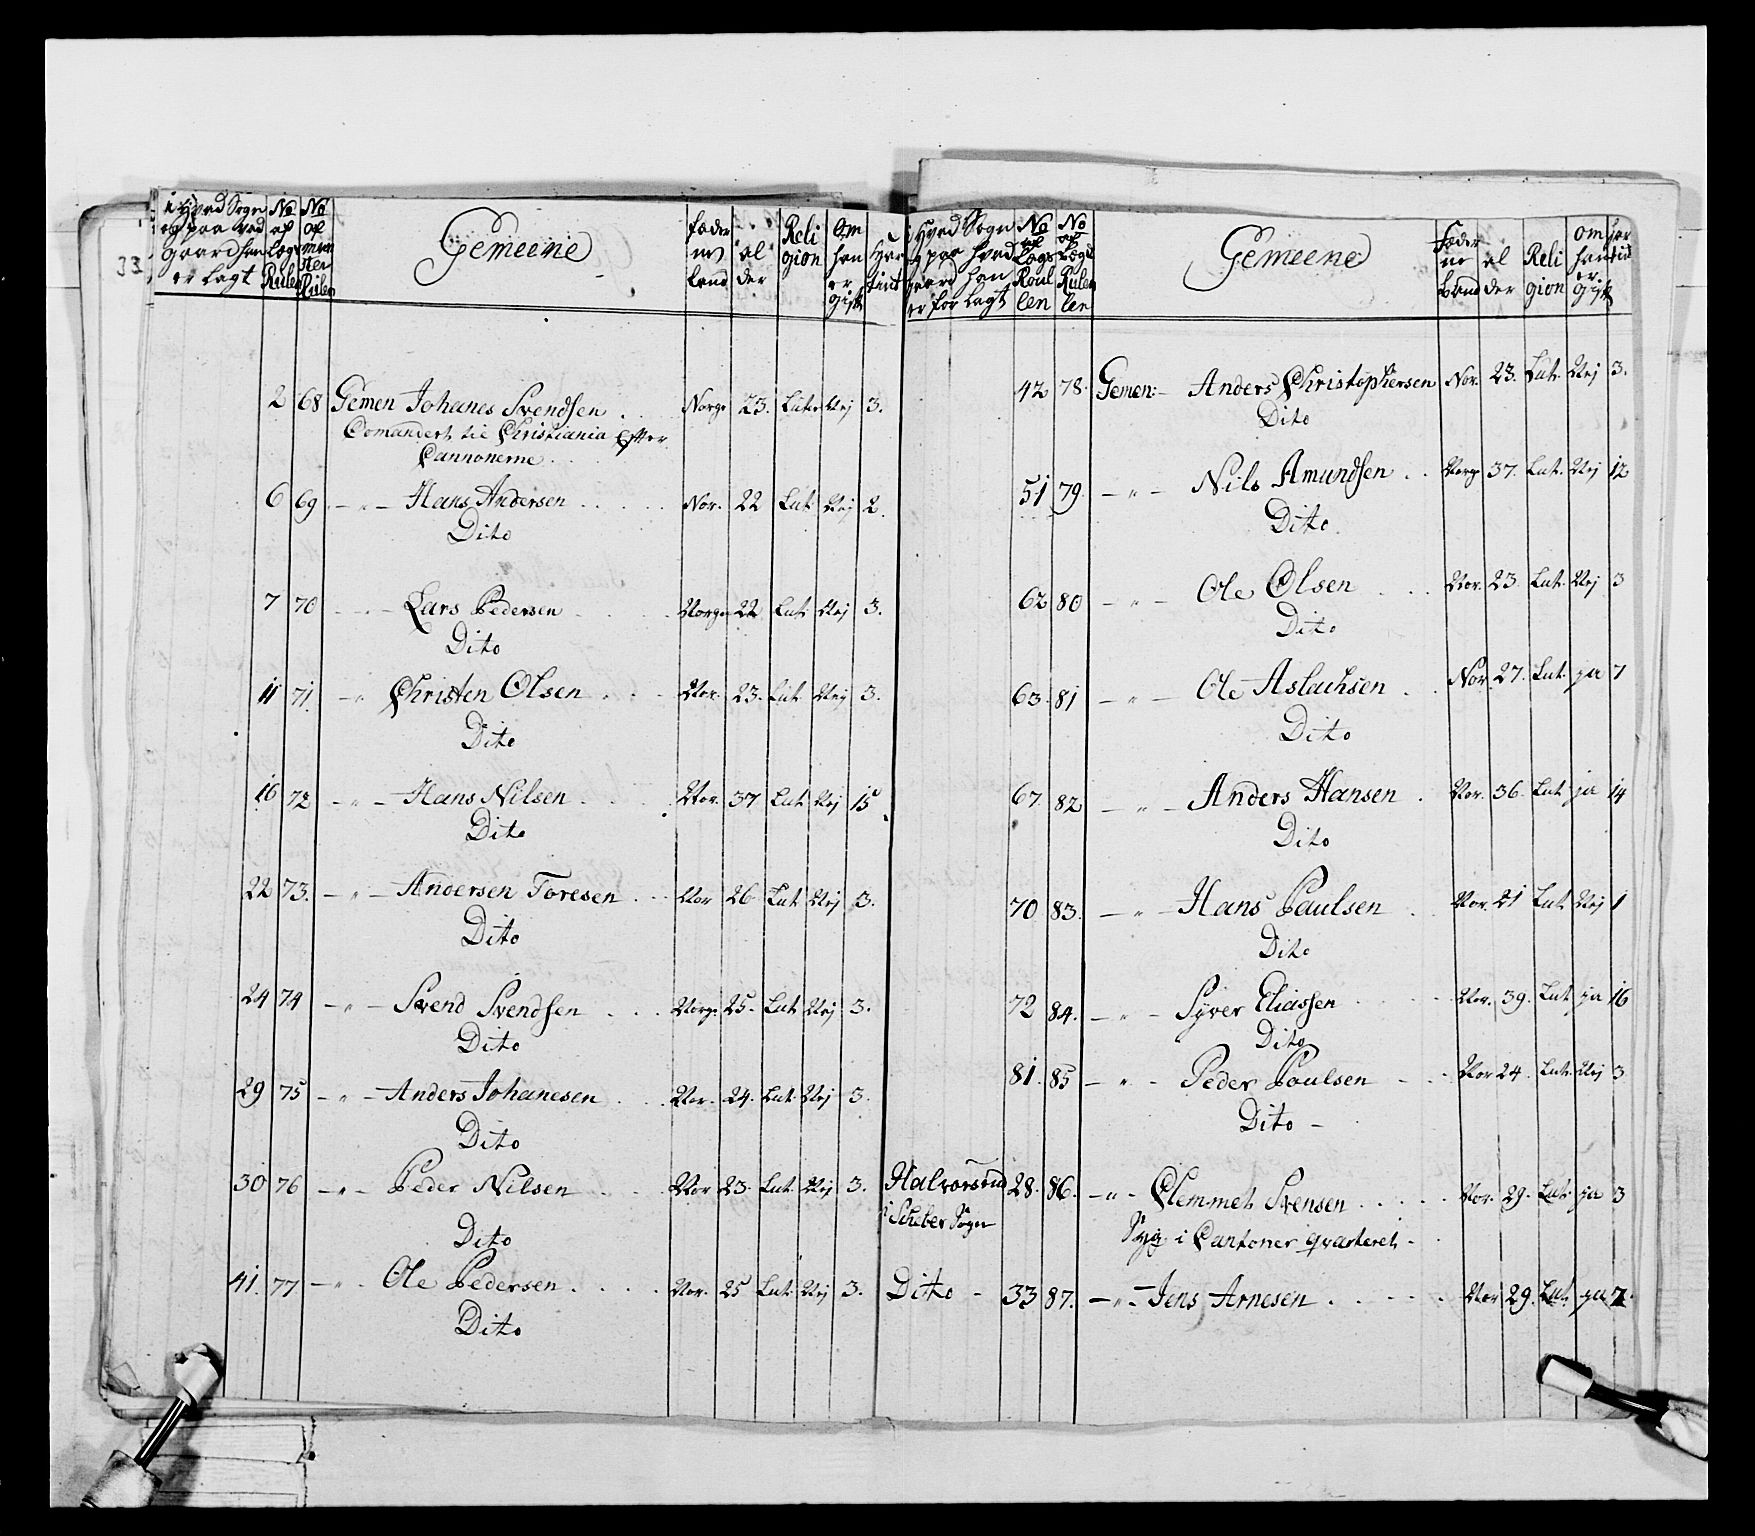 33
i Hvad Sogn og paa vad gaard han er lagt | No af Lægs Rulen | No af mynster Rulen | Gemeene | fæder ne land | al der | Reli gion | Om han er gift | Hvor tient
2 | 68 | Gemen Johanes Svendsen . . | Norge | 23. | Luter | Nej | 3.
Comandert til Christiania Efter
Cannonerne .
6 | 69 | – " – Hans Andersen . . . . . | Nor. | 22 | Lut | Nej | 2.
Dito
7 | 70 | – " – Lars Pedersen . . . . | Norge | 22 | Lut | Nej | 3.
Dito
11 | 71. | – " Christen Olsen . . . | Nor. | 23. | Lut | Nej | 3.
Dito
16 | 72 | – " – Hans Nilsen . . . | Nor. | 37 | Lut | Nej | 15
Dito
22 | 73. | – " – Andersen Toresen . . . | Nor | 26 | Lut | Nej | 3.
Dito
24 | 74 | – " – Svend Svendsen . . . | Norge | 25. | Lut | Nej | 3.
Dito
29 | 75 | – " – Anders Johanesen . . . | Nor. | 24. | Lut | Nej | 3.
Dito
30 | 76 | – " – Peder Nilsen . . . | Nor | 23. | Lut. | Nej | 3.
Dito
41. | 77 | – " . Ole Pedersen . . . . | Nor. | 25 | Lut | Nej | 3.
Dito
i Hvad Sogn og paa hvad gaard han er for lagt | No af Lægs Roul len | No af Lægs Rulen len | Gemeene | Fæder ne Land | al der | Reli gion | om han er gift | tid
42 | 78. | Gemen: – Anders Christophersen | Nor. | 23. | Lut. | Nej | 3.
Dito
51 | 79. | – " – Nils Amundsen . . | Norge | 37. | Lut. | Nej | 12
Dito.
62 | 80 | – " – Ole Olsen . . . | Nor. | 23. | Lut. | Nej | 3
Dito
63. | 81 | – " – Ole Aslachsen . . | Nor. | 27. | Lut. | ja | 7
Dito
67. | 82 | – " – Anders Hansen . | Nor. | 36. | Lut | ja | 14
Dito
70 | 83. | – " – Hans Paulsen . . | Nor. | 21 | Lut | Nej | 1
Dito
72 | 84. | – " – Syver Eliassen . . . . | Nor. | 39. | Lut | ja | 16
Dito
81. | 85 | – " – Peder Poulsen – . . | Nor | 24. | Lut. | Nej | 3
Dito –
Halvorsrud | 28. | 86. | – " – Clemmet Svensen . . . . | Nor. | 29. | Lut. | ja | 3
i Scheber Sogn | Syg i Cantoner qvarteret .
Dito – | 33 | 87. | – " – Jens Arnesen . . . . | Nor | 29. | Lut. | ja | 7.